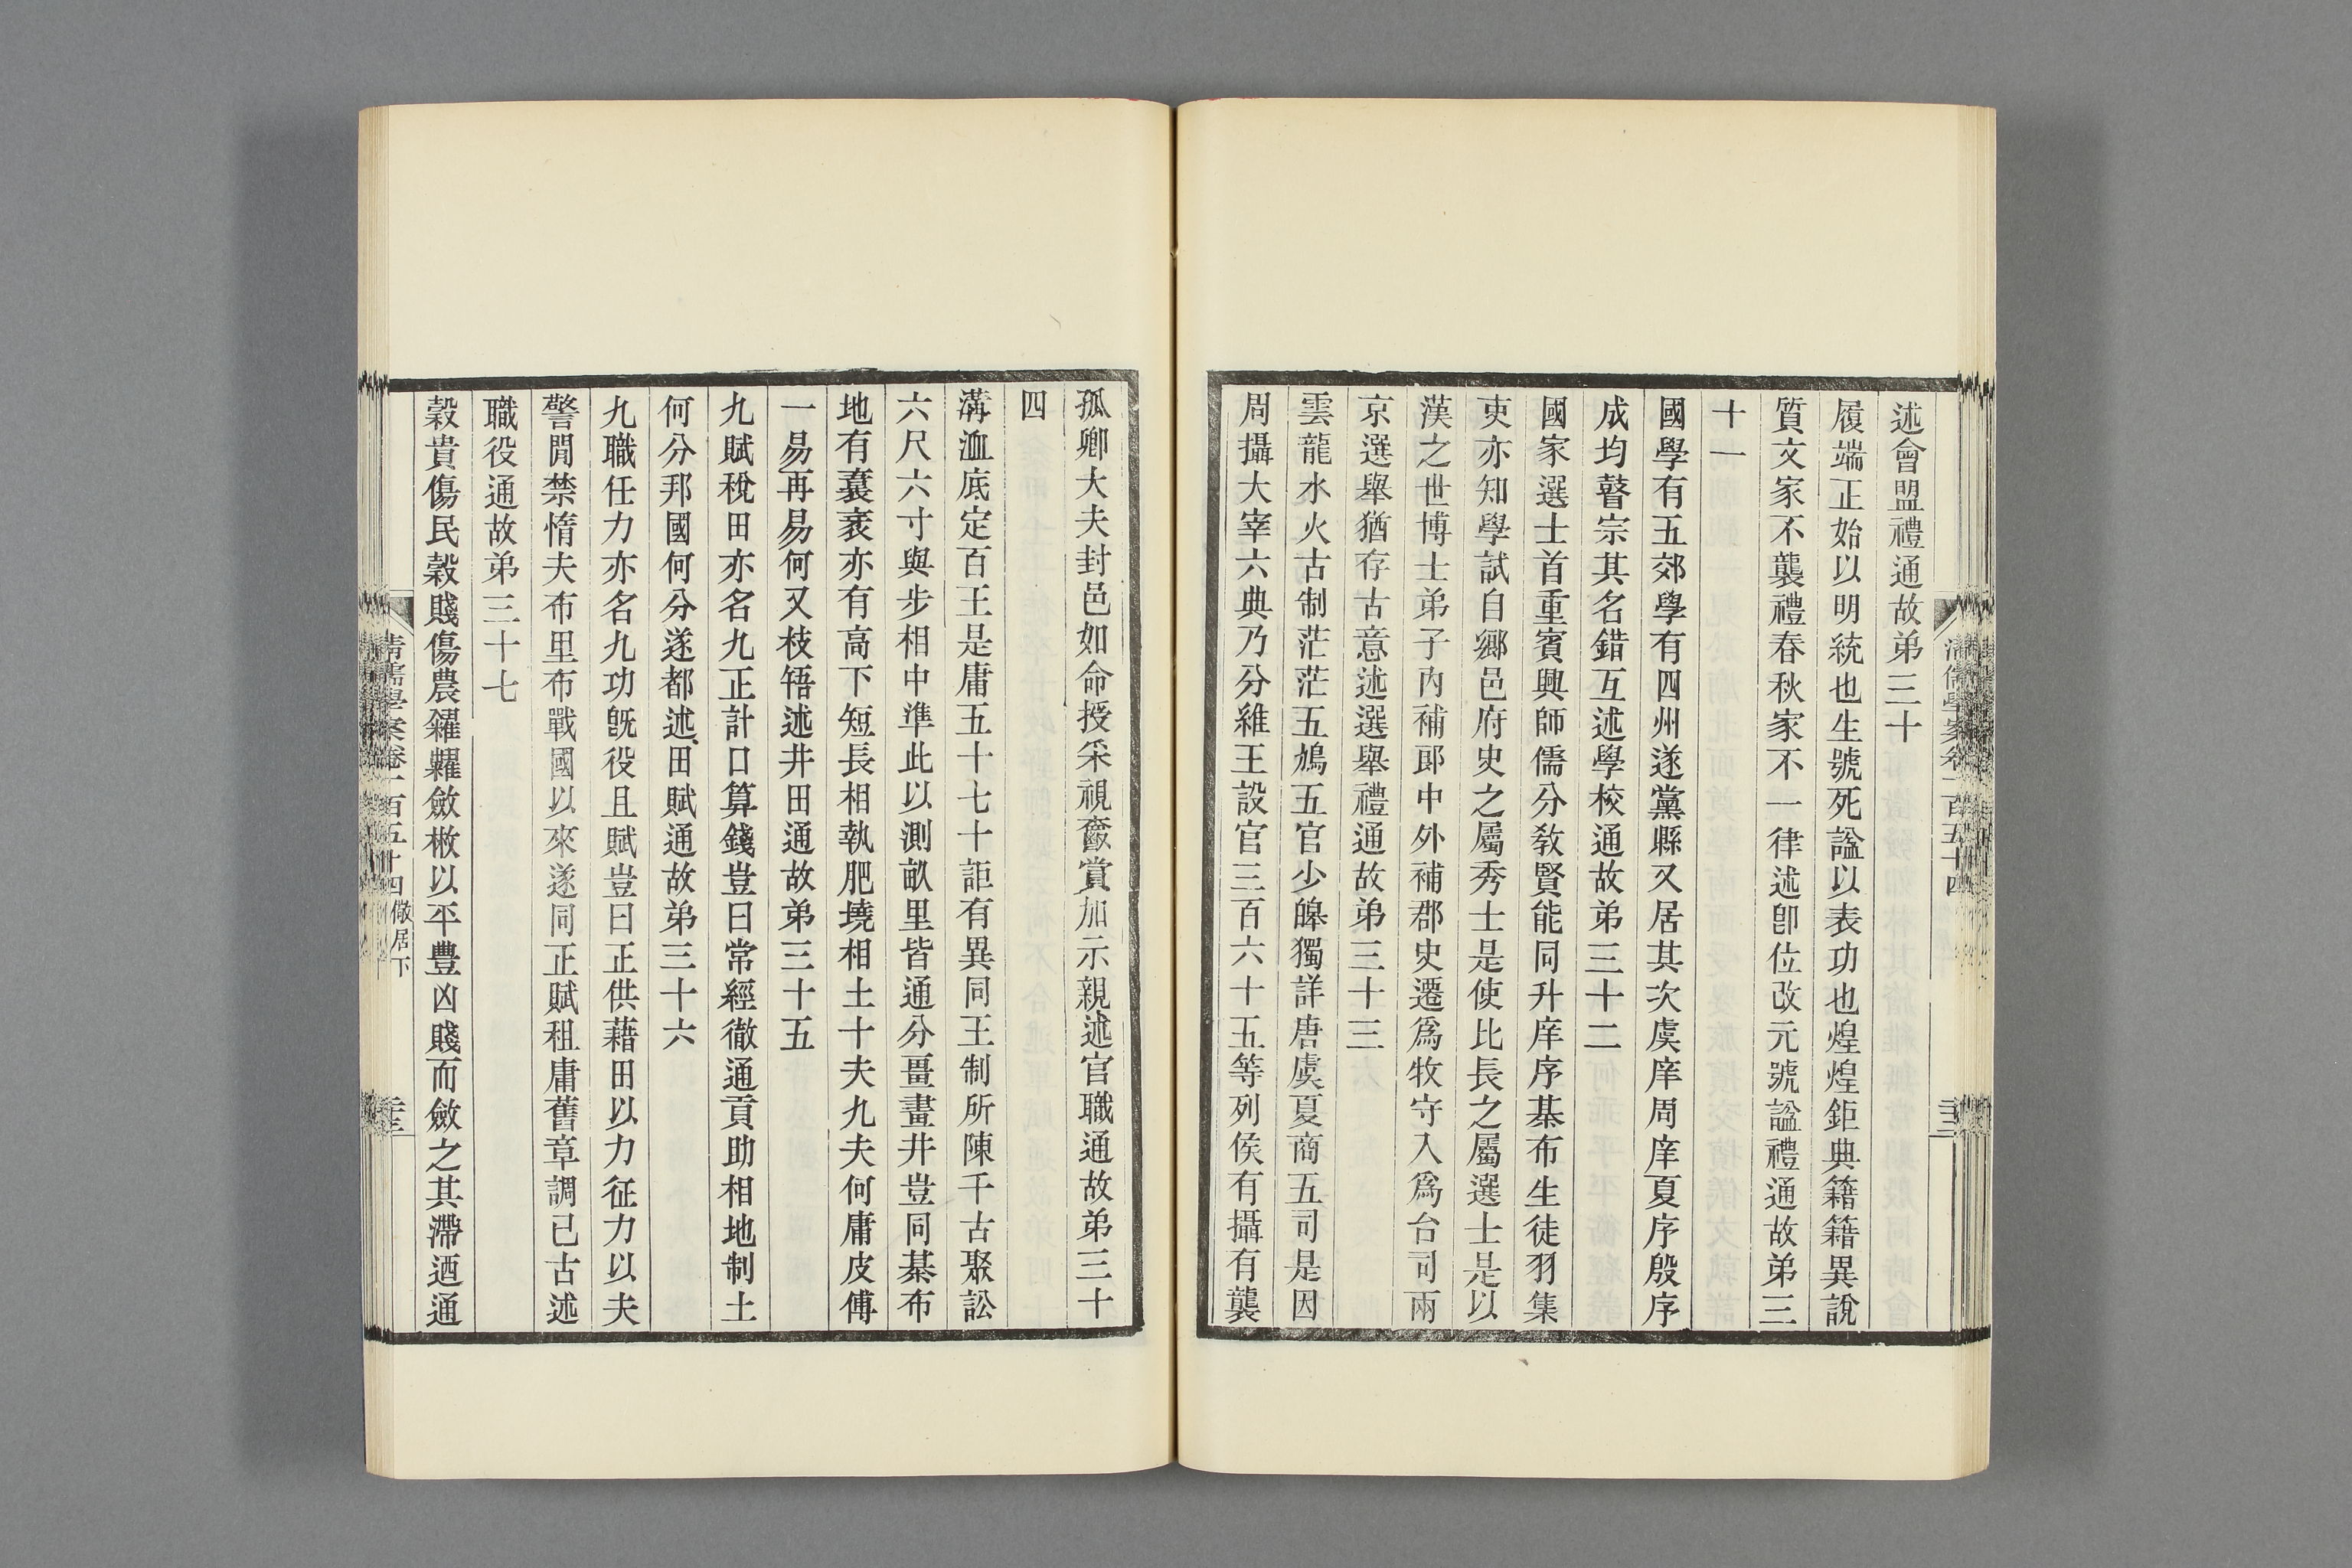 述會盟禮通故弟三十
履端正始以明統也生號死諡以表功也煌煌鉅典籍籍異說
質文家不襲禮春秋家不一律述卽位改元號諡禮通故弟三
十一
國學有五郊學有四州遂黨縣又居其次虞庠周庠夏序殷序
成均瞽宗其名錯互述學校通故弟三十二
國家選士首重賓興師儒分敎賢能同升庠序棊布生徒羽集
吏亦知學試自鄉邑府史之屬秀士是使比長之屬選士是以
漢之世博士弟子內補郞中外補郡史遷爲牧守入爲台司兩
京選舉猶存古意述選舉禮通故弟三十三
雲龍水火古制茫茫五鳩五官少皞獨詳唐虞夏商五司是因
周攝大宰六典乃分維王設官三百六十五等列侯有攝有襲
清儒學案卷一百五十四
孤卿大夫封邑如命授采視齍賞加示親述官職通故弟三十
四
溝洫底定百王是庸五十七十詎有異同王制所陳千古聚訟
六尺六寸與步相中準此以測畝里皆通分畺畫井豈同棊布
地有袤衺亦有高下短長相執肥墝相土十夫九夫何庸皮傅
一易再易何又枝梧述井田通故弟三十五
九賦稅田亦名九正計口算錢豈曰常經徹通貢助相地制土
何分邦國何分遂都述田賦通故弟三十六
九職任力亦名九功旣役且賦豈曰正供藉田以力征力以夫
警閒禁惰夫布里布戰國以來遂同正賦租庸舊章調已古述
職役通故弟三十七
穀貴傷民穀賤傷農糴糶斂檄以平豐凶賤而斂之其滯迺通
清儒學案卷一百五十四 儆居下